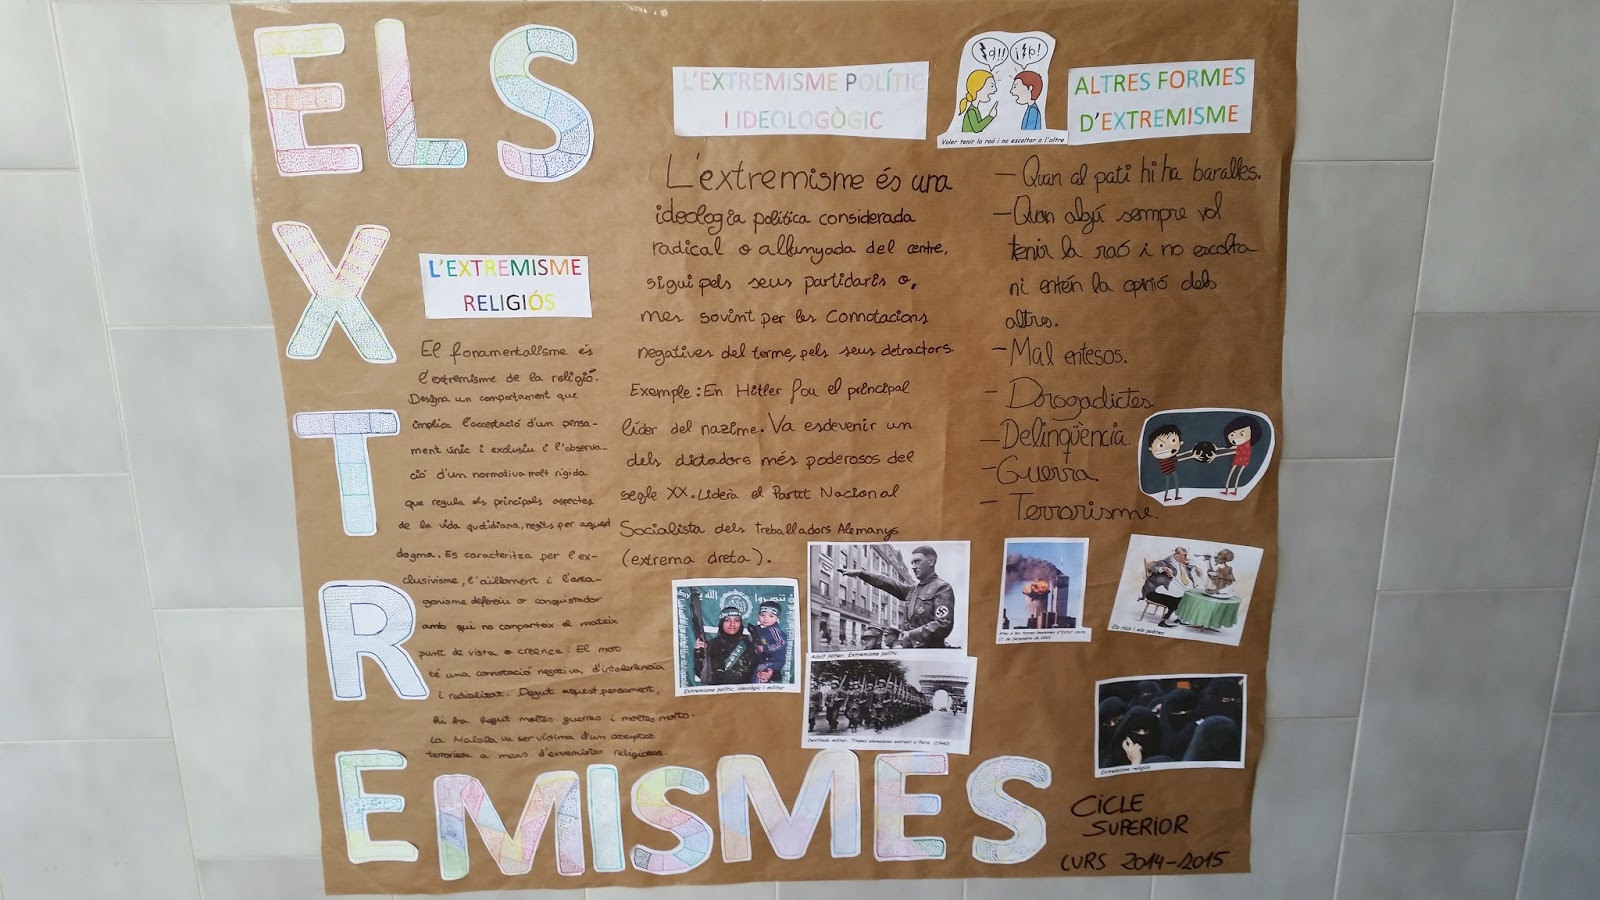 ELS
EXTREMISMES
L'EXTREMISME
RELIGIÓS
El fonamentalisme és
l'extremisme de la religió.
Designa un comportament que
implica l'acceptació d'un pensa-
ment únic i exclusiu i l'observa-
ció d'un normativa molt rígida
que regula els principals aspectes
de la vida quotidiana, regits per aquest
dogma. Es caracteritza per l'ex-
clusivisme, l'aïllament i l'anta-
gonisme defensiu o conquistador
amb qui no comparteix el mateix
punt de vista o creença. El mot
té una connotació negativa d'intolerància
i radicalitat. Degut aquest pensament,
hi ha hagut moltes guerres i moltes morts.
La Malala va ser víctima d'un atemptat
terrorista a mans d'extremistes religiosos.
L'EXTREMISME POLÍTIC
I IDEOLOGÒGIC
L'extremisme és una
ideologia política considerada
radical o allunyada del centre,
sigui pels seus partidaris o,
mes sovint per les connotacions
negatives del terme, pels seus detractors.
Exemple: En Hitler fou el principal
líder del nazime. Va esdevenir un
dels dictadors més poderosos del
segle XX. Liderà el Partit Nacional
Socialista dels Treballadors Alemanys
(extrema dreta).
Extremisme polític, ideològic i militar
Adolf Hitler. Extremisme polític.
Desfilada militar. Tropes alemanyes entrant a París (1940)
Voler tenir la raó i no escoltar a l'altre
ALTRES FORMES
D'EXTREMISME
- Quan al pati hi ha baralles.
- Quan algú sempre vol
tenir la raó i no escolta
ni entén la opinió dels
altres.
- Mal entesos.
- Drogadictes
- Delinqüència.
- Guerra.
- Terrorisme.
Atac a les torres bessones d'Estat Units.
11 de Setembre de 2001
Els rics i els pobres
Extremisme religiós
CICLE
SUPERIOR
CURS 2014-2015